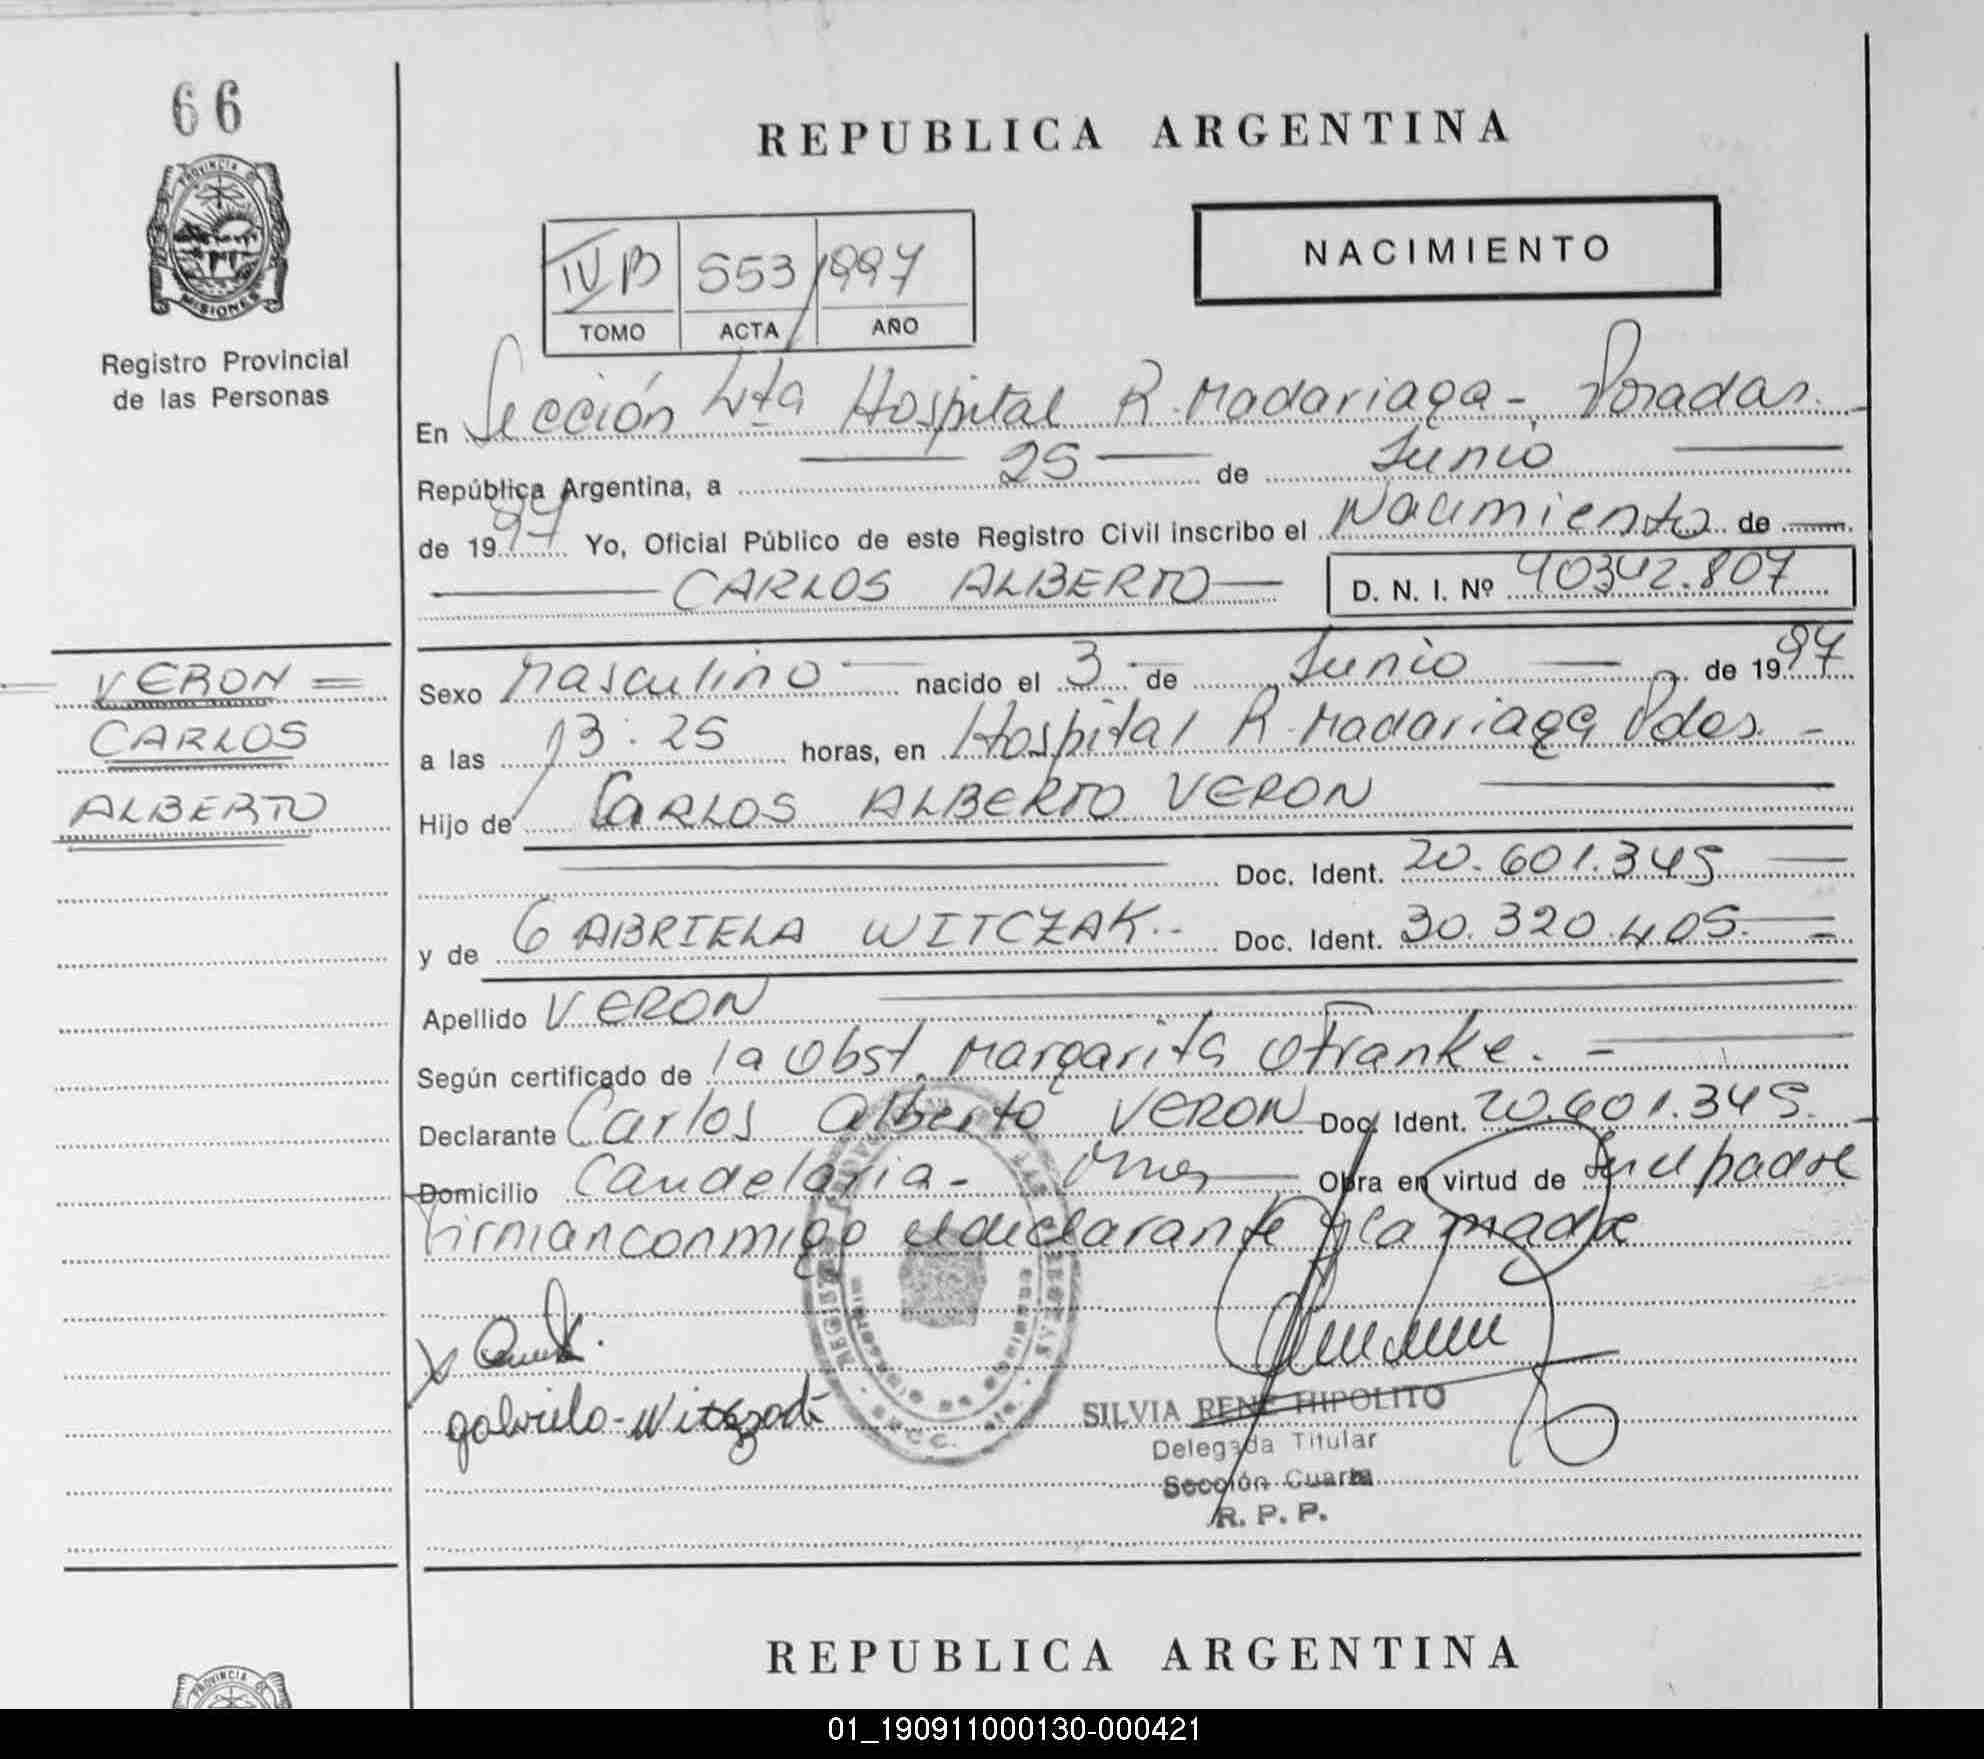 66
PROVINCIA DE
MISIONES
Registro Provincial
de las Personas
REPUBLICA ARGENTINA
NACIMIENTO
IV B 553 1997
TOMO ACTA AÑO
En Sección 4ta Hospital R. Madariaga - Posadas.
República Argentina, a 25 de Junio
de 1997 Yo, Oficial Público de este Registro Civil inscribo el Nacimiento de
CARLOS ALBERTO D. N. I. Nº 40342.807
VERON
CARLOS
ALBERTO
Sexo Masculino nacido el 3 de Junio de 1997
a las 13:25 horas, en Hospital R. Madariaga Pdas. -
Hijo de CARLOS ALBERTO VERON
Doc. Ident. 20.601.345
y de GABRIELA WITCZAK.- Doc. Ident. 30.320.405.
Apellido VERON
Según certificado de la Obst. Margarita Franke. -
Declarante Carlos Alberto VERON Doc. Ident. 20.601.345.
Domicilio Candelaria - Mnes Obra en virtud de ser el padre
Firman conmigo el declarante y la madre
gabriela - Witczak
SILVIA RENE HIPOLITO
Delegada Titular
Sección Cuarta
R. P. P.
REPUBLICA ARGENTINA
PROVINCIA DE
01_190911000130-000421